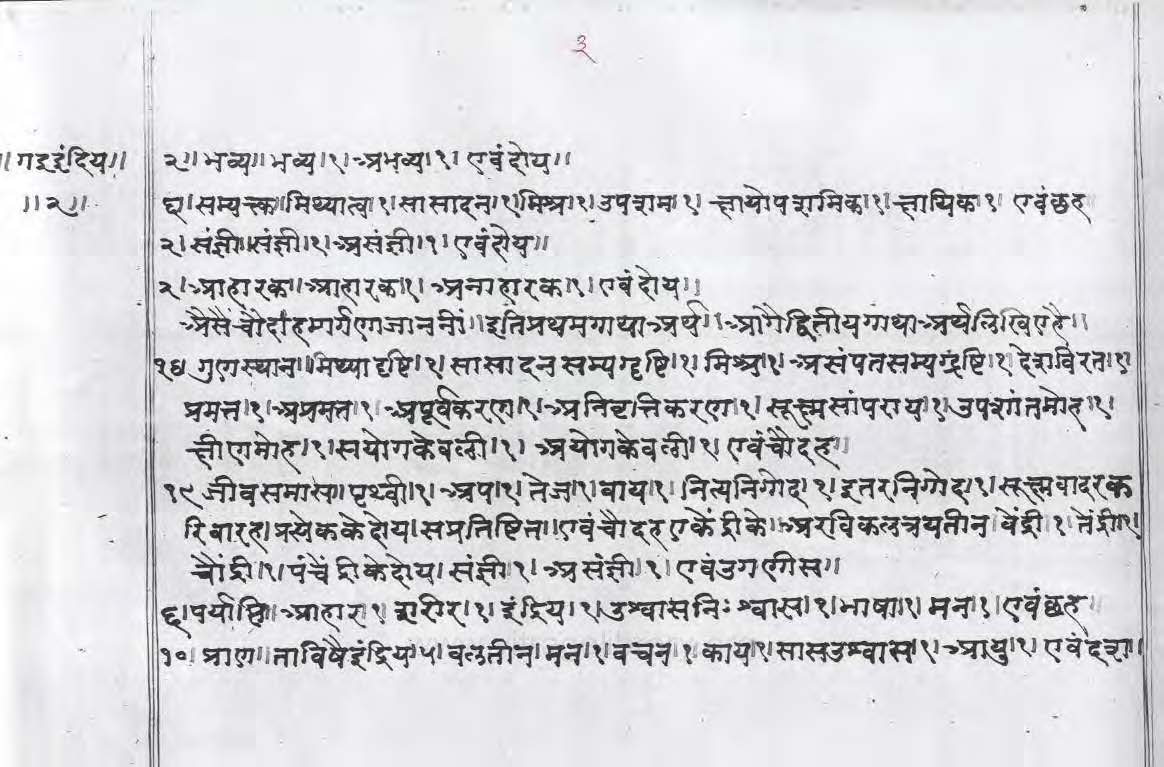 ३
॥गइइंदिय॥ २॥ भव्य॥ भव्य।१।अभव्य।१। एवंदोय॥
॥२॥ ६। सम्यक्त्क॥मिथ्यात्व।१।सासादन।१।मिश्र।१।उपशम।१। क्षायोपशमिक।१।क्षायिक।१। एवंछह
२। संज्ञी॥संज्ञी।१।असंज्ञी।१।एवंदोय॥
२।आहारक॥आहारक।१।अनाहारक।१।एवंदोय॥
अैसैं चौदाहमार्गणाजाननीं॥इतिप्रथमगाथाअर्थ॥आगैद्वितीयगाथाअर्थलिखिएहै॥
१४ गुणस्थान॥मिथ्यादृष्टि।१।सासादनसम्यगदृष्टि।१।मिश्र।१।असंयतसम्यगदृष्टि।१।देशविरत।१।
प्रमत्त।१।अप्रमत्त।१।अपूर्वकरण।१।अनिवृत्तिकरण।१।सूक्ष्मसांपराय।१।उपशांतमोह।१
क्षीणमोह।१।सयोगकेवली।१।अयोगकेवली।१। एवंचौदह॥
१९ जीवसमास॥पृथ्वी।१।अप।१।तेज।१।वाय।१।नित्यनिगोद।१।इतरनिगोद।१।सूक्ष्मवादरक
रिबारह।प्रत्येककेदोय।सप्रतिष्टित।एवंचौदहएकेंद्रीके।अरविकलत्रयतीन।वेंद्री।१।तेंद्री।१।
चौंद्री।१।पंचेंद्रीकेदोय।संज्ञी।१।असंज्ञी।१। एवंउगणीस॥
६।पर्याप्ति॥आहार।१।शरीर।१।इंद्रिय।१।उश्वासनिःश्वास।१।भाषा।१।मन।१।एवंछह॥
१०।प्राण॥ताविषैइंद्रिय।५।वलतीन।मन।१।वचन।१।काय।१।सासउश्वास।१।आयु।१।एवंदश॥